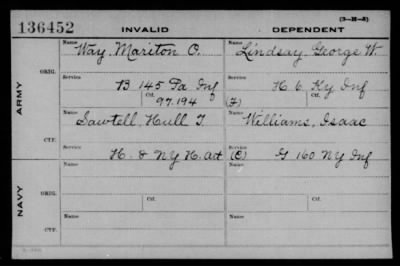 (3-M-3)
136452 INVALID DEPENDENT
Name Name
Way, Mariton O. Lindsay, George W.
ARMY
ORIG.
Service Service
B 145 Pa Inf H 6 Ky Inf
Ctf. Ctf.
97.194
Name Name
Sawtell, Hull T. Williams, Isaac
CTF.
Service Service
H. 8 NY H. Art (C) G 160 NY Inf
NAVY
Name Name
ORIG.
Service Ctf. Service Ctf.
Name Name
CTF.
Service Service